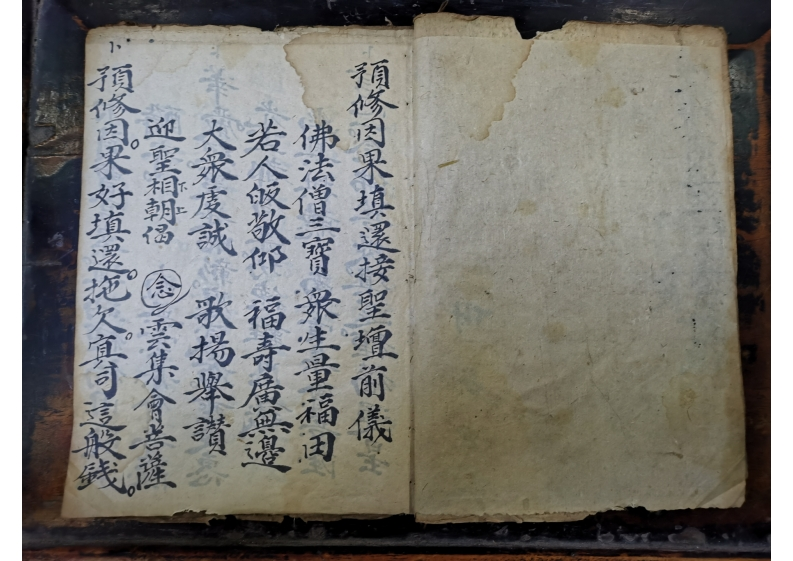 預修因果填還接聖壇前儀
佛法僧三寶 衆生量福田
若人皈敬仰 福壽廣無邊
大衆虔誠 歌揚舉讃
迎聖相朝偈下上 念 雲集會菩薩
卜
預修因。果好填還。拖欠。冥司這般錢。